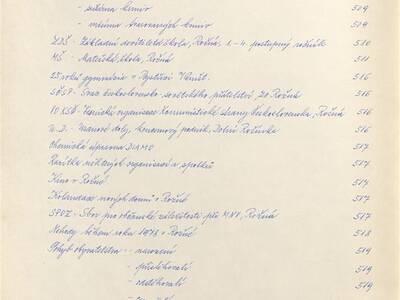 - veřtino kino 509
- veřtino kino 509
ZDŠ - Základní devítiletá škola, Rožná, 1.-4. postupný ročník 510
MŠ - Mateřská škola, Rožná 511
25 roků gymnázia v Bystřici n.Pernšt. 516
SČSP - Svaz československo-sovětského přátelství, ZO Rožná 516
VO KSČ - Vesnická organisace Komunistické strany Československa, Rožná 516
U.D. - Uranové doly, koncernový podnik, Dolní Rožínka 516
Chemická úpravna DIAMO 517
Razítka některých organisací a spolků 517
Kino v Rožné 517
Kolaudace nových domů v Rožné 517
SPOZ - Sbor pro občanské záležitosti při MNV, Rožná 517
Nehody během roku 1978 v Rožné 518
Pohyb obyvatelstva - narození 519
- přistěhovalí 519
- odstěhovalí 519